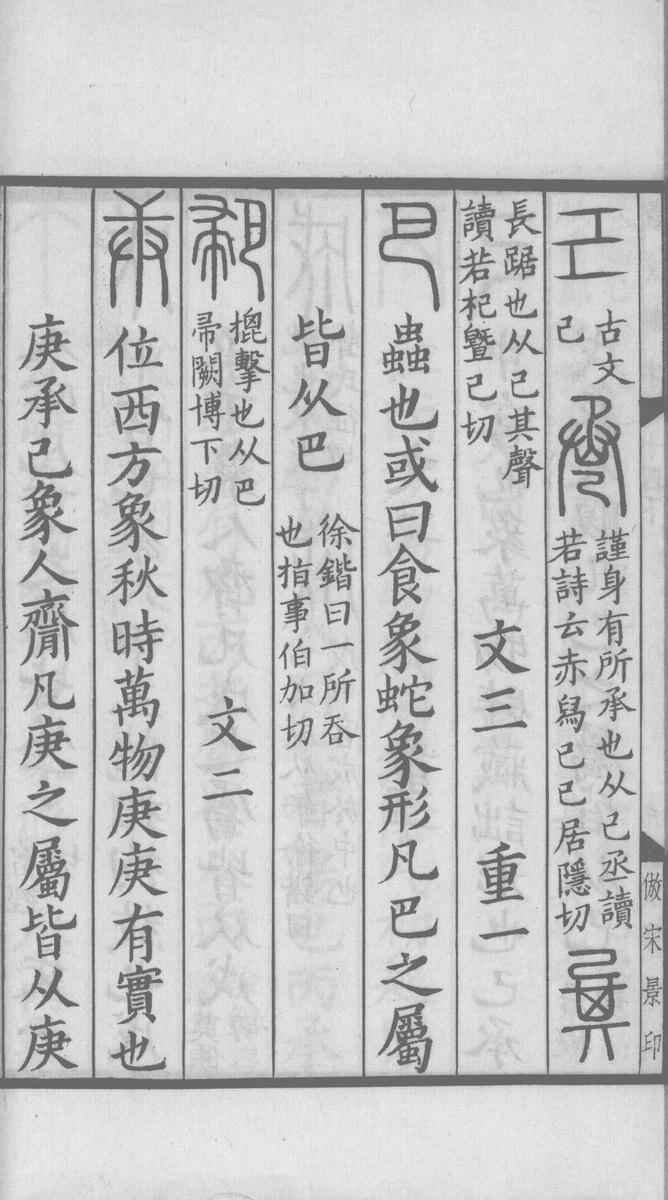 倣宋景印
己
古文
己
卺
謹身有所承也从己丞讀
若詩云赤舄己己居隱切
㠱
長踞也从己其聲
讀若杞曁己切
文三　重一
巴
蟲也或曰食象蛇象形凡巴之屬
皆从巴
徐鍇曰一所吞
也指事伯加切
擊也从巴
帚闕博下切
文二
庚
位西方象秋時萬物庚庚有實也
庚承己象人臍凡庚之屬皆从庚